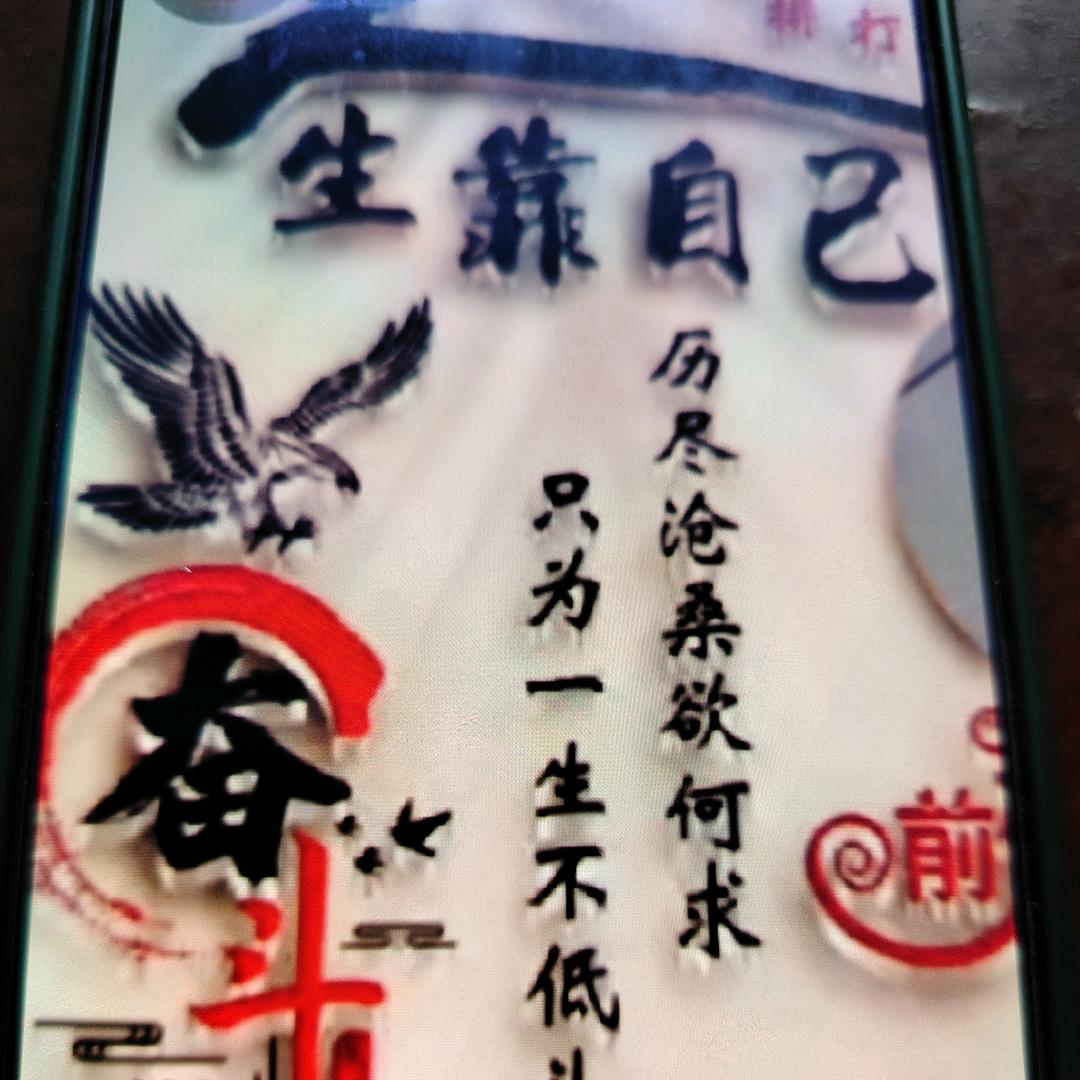 一生靠自己
历尽沧桑欲何求
只为一生不低
奋斗
前